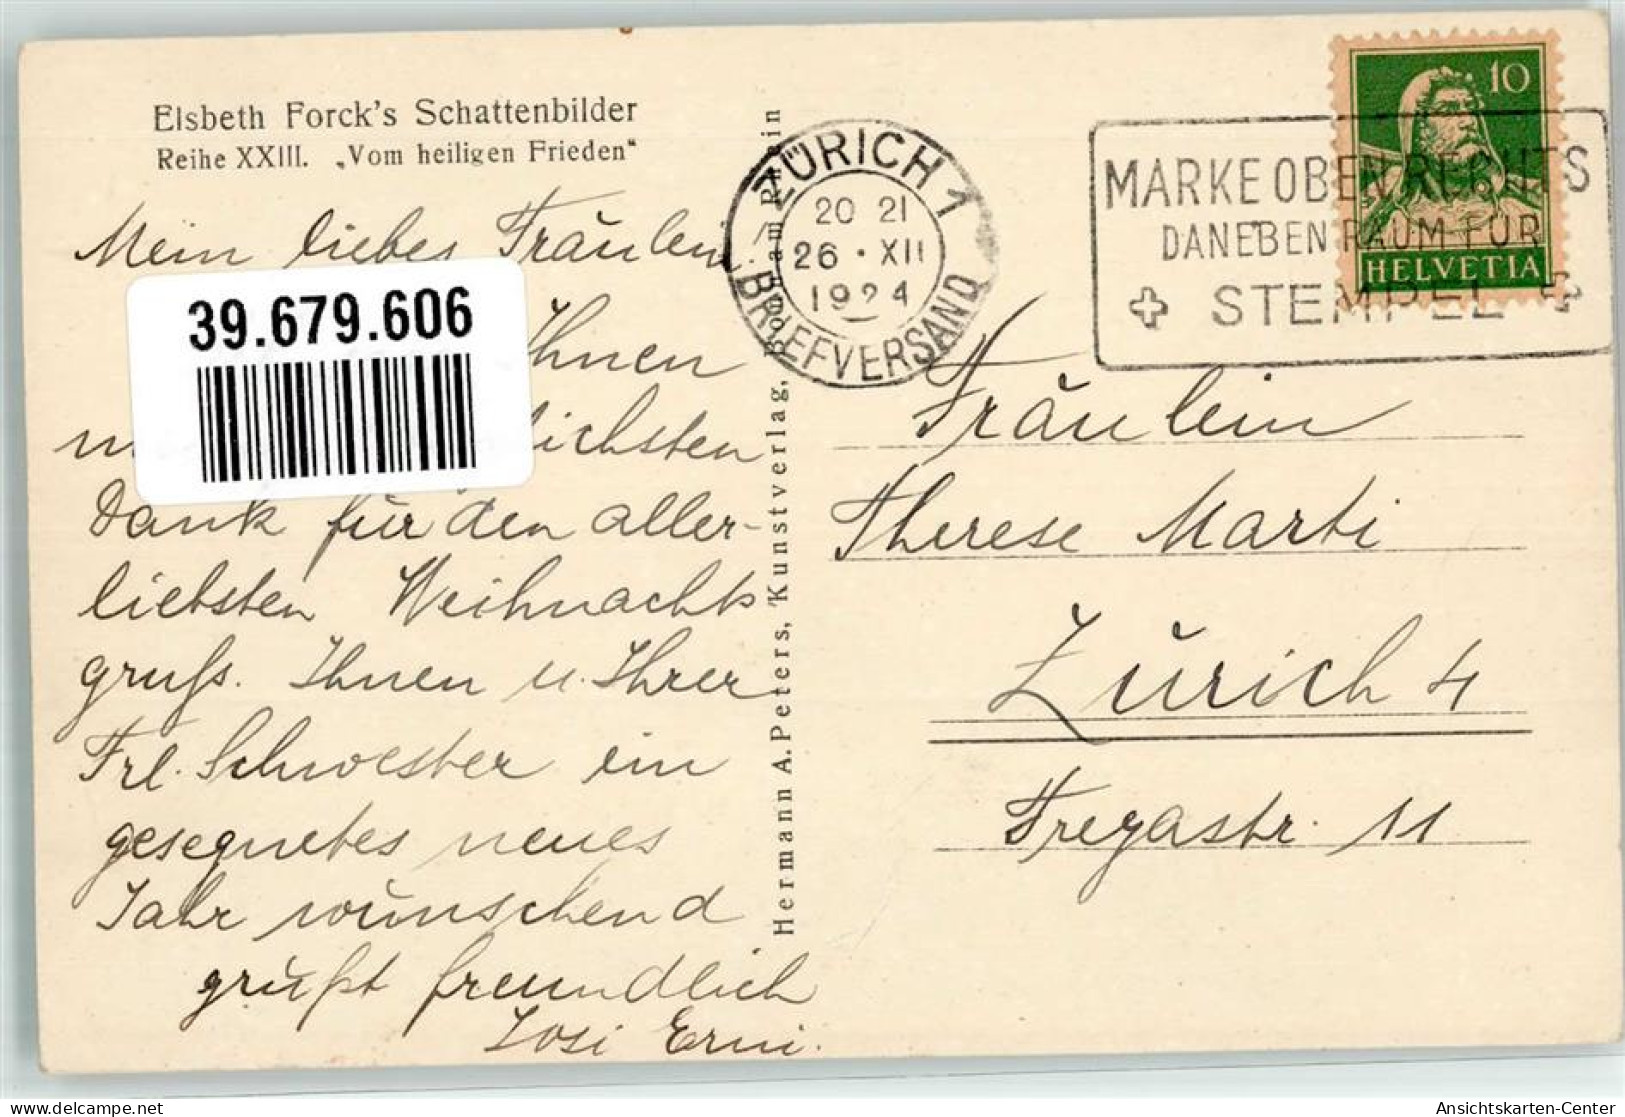 Elsbeth Forck's Schattenbilder
Reihe XXIII. „Vom heiligen Frieden"
Mein liebes Fräulein
39.679.606
Ihnen
lichsten
Dank für den aller-
liebsten Weihnachts
gruß. Ihnen u. Ihrer
Frl. Schwester ein
gesegnetes neues
Jahr wünschend
grüßt freundlich
Josi Erni.
Hermann A. Peters, Kunstverlag, Bonn am Rhein
ZÜRICH 1
20 21
26 · XII
1924
BRIEFVERSAND
MARKE OBEN RECHTS
DANEBEN RAUM FÜR
STEMPEL
10
HELVETIA
Fräulein
Therese Marti
Zürich 4
Freyastr. 11
Ansichtskarten-Center